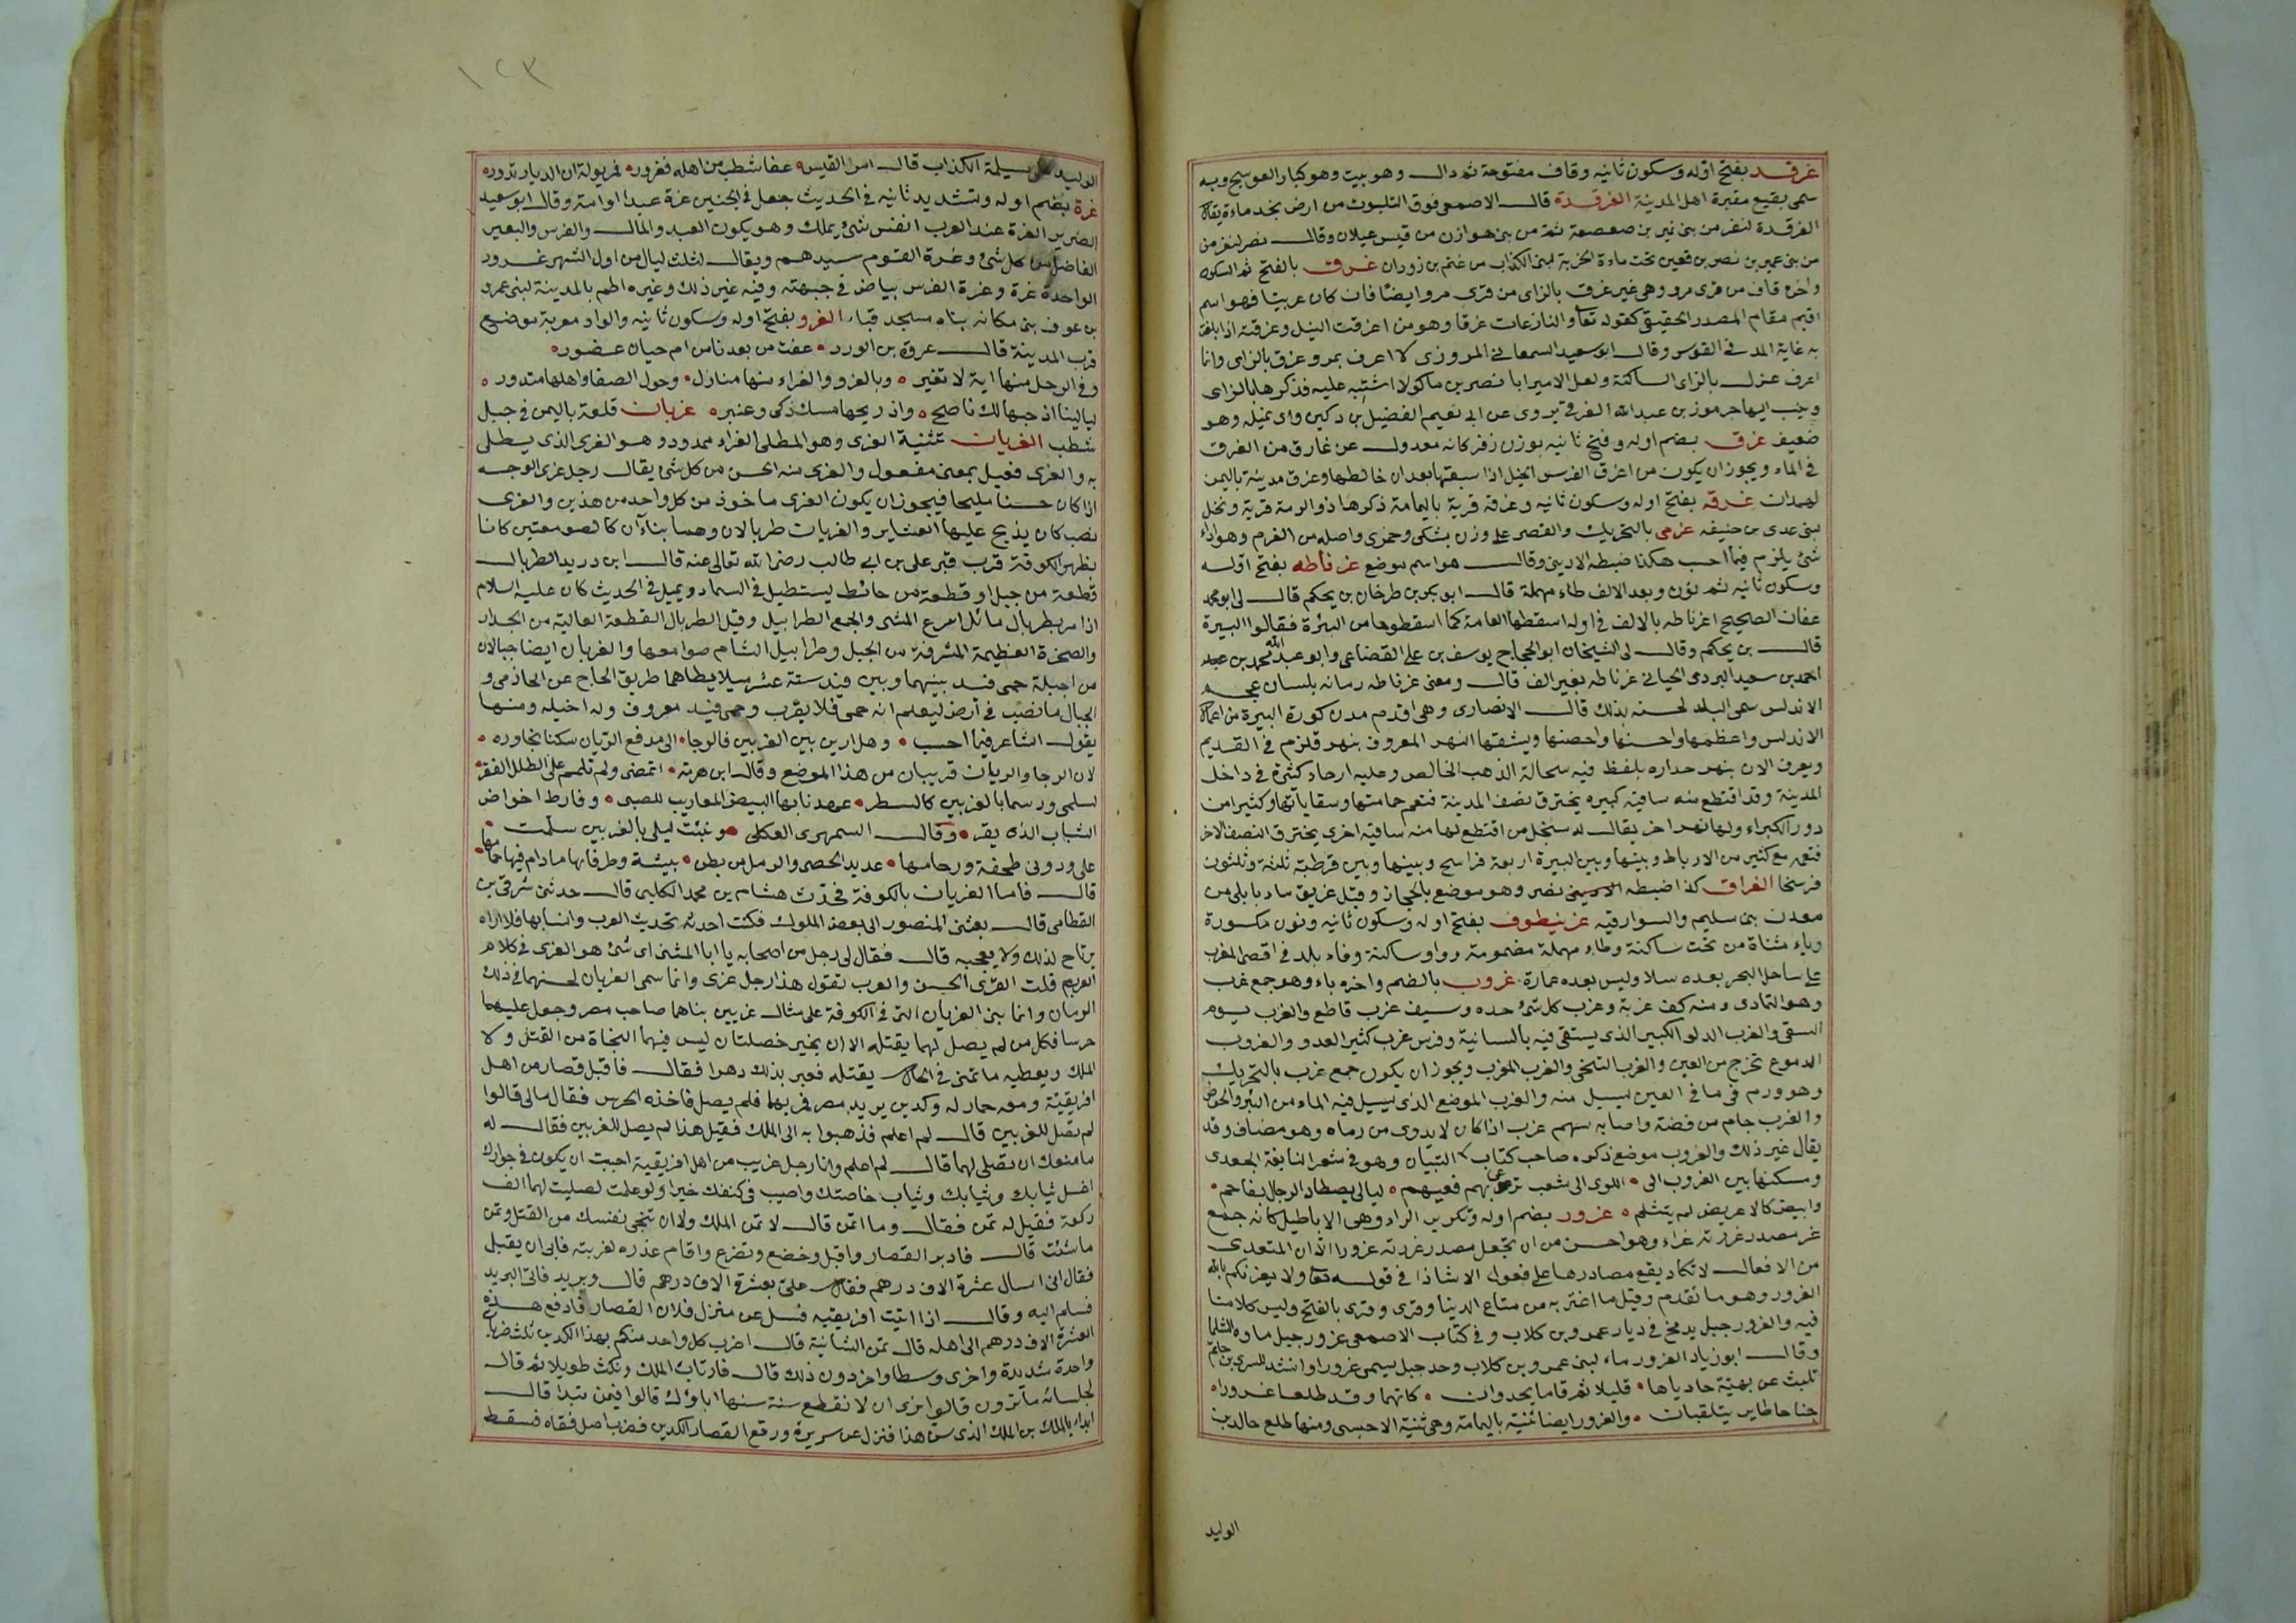 غرقد بفتح اوله وسكون ثانيه وقاف مفتوحة ثم دال وهو بيت وهو كبار العوسج وبه
سمى بقيع مقبرة اهل المدينة الغرقدة قال الاصمعى فوق الثلبوت من ارض نجد ماءة يقال
الغرقدة لنفر من بنى نمير بن صعصعة ثم من بنى هوازن من قيس عيلان وقال نصر لنفر من
من بنى عمير بن نصر بن قعين تحت ماءة الخربة لبنى الكذاب من غنم بن زوران غرق بالفتح ثم السكون
واخره قاف من قرى مرو وهى غير غزق بالزاى من قرى مرو ايضا فان كان عربيا فهو اسم
اقيم مقام المصدر الحقيقى كقوله تعا والنازعات غرقا وهو من اغرقت النبل وغرقته اذا بلغت
به غاية المد فى القوس وقال ابو سعيد السمعانى المروزى لا اعرف بمرو غرق بالزاى وانما
اعرف غزل بالزاى الساكنة ولعل الامير ابا نصر بن ماكولا اشتبه عليه فذكرها بالزاى
ونسب اليها جرموز بن عبد الله الغرقى يروى عن ابى نعيم الفضيل بن دكين وابى نميله وهو
ضعيف غرق بضم اوله وفتح ثانيه بوزن زفر كانه معدول عن غارق من الغرق
فى الماء ويجوز ان يكون من اغرق الفرس الخيل اذا سبقها بعد ان خالطها وغرق مدينة باليمن
لهمدان غرقه بفتح اوله وسكون ثانيه وغرقة قرية باليمامة ذكرها ذو الرمة قرية ونخل
لبنى عدى بن حنيفه غرمى بالتحريك والقصر على وزن بشكى وجمزى واصله من الغرم وهو اداء
شئ يلزم فيما احب هكذا ضبطه الاديبى وقال هو اسم موضع غرناطه بفتح اوله
وسكون ثانيه ثم نون وبعد الالف طاء مهملة قال ابو بكر بن طرخان بن يحكم قال لى ابو محمد
عفان الصحيح اغرناطه بالالف فى اوله اسقطها العامة كما اسقطوها من البيرة فقالوا البيرة
قال بن يحكم وقال لى الشيخان ابو الحجاج يوسف بن على القضاعى وابو عبد الله محمد بن عبد
احمد بن سعيد البردى الحيانى غرناطه بغير الف قال ومعنى غرناطه رمانه بلسان عجم
الاندلس سمى البلد لحسنه بذلك قال الانصارى وهى اقدم مدن كورة البيرة من اعمال
الاندلس واعظمها واحسنها واحصنها ويشقها النهر المعروف بنهر قلزم فى القديم
ويعرف الان بنهر حداره بلفظ فيه سحالة الذهب الخالص وعليه ارحاء كثيرة فى داخل
المدينة وقد اقتطع منه ساقية كبيره يخترق نصف المدينة فتعم حمامتها وسقاياتها وكثيرا من
دور الكبراء ولها نهر اخر يقال له سنجل من اقتطع لها منه ساقية اخرى يخترق النصف الاخر
فتعمه مع كثير من الارباط وبينها وبين البيرة اربعة فراسخ وبينها وبين قرطبة ثلثة وثلثون
فرسخا الغراق كذا ضبطه نصر وهو موضع بالحجاز وقيل غريق ماء بابلى من
معدن بنى سليم والسوارقيه غرنيطوف بفتح اوله وسكون ثانيه ونون مكسورة
وياء مثناة من تحت ساكنة وطاء مهملة مضمومة وواو ساكنة وفاء بلد فى اقصى المغرب
على ساحل البحر بعده سلا وليس بعده عمارة غروب بالضم واخره باء وهو جمع غرب
وهو التمادى ومنه كف غربة وغرب كل شئ حده وسيف غرب قاطع والغرب يوم
السقى والغرب الدلو الكبير الذى يستقى فيه بالسانية وفرس غرب كثير العدو والغروب
الدموع تخرج من العين والغرب التنحى والغرب المغرب ويجوز ان يكون جمع غرب بالتحريك
وهو ورم فى ما فى العين يسيل منه والغرب الموضع الذى يسيل فيه الماء من البئر والحوض
والغرب جام من فضة واصابه سهم غرب اذا كان لا يدرى من رماه وهو مضاف وقد
يقال غير ذلك والغروب موضع ذكره صاحب كتاب التبيان وهو فى شعر النابغة الجعدى
ومسكنها بين الغروب الى اللوى الى شعب ترعى بهم فعيهم ليالى يصطاد الرجال بفاحم
وابيض كالاغريض لم يتثلم غرور بضم اوله وتكرير الراء وهى الاباطيل كانه جمع
غر مصدر غررته غراء وهو احسن من ان يجعل مصدر غررته غرورا الا ان المتعدى
من الافعال لا تكاد يقع مصادرها على فعول الا شاذا فى قوله تعا ولا يغرنكم بالله
الغرور وهو ما تقدم وقيل ما اغتر به من متاع الدنيا وقرى وقرى بالفتح وليس كلامنا
فيه والغرور جبل بدمخ فى ديار عمرو بن كلاب وفى كتاب الاصمعى غرور جبل ماوه الثلما
وقال ابو زياد الغرور ماء لبنى عمرو بن كلاب وحد جبل يسمى غرورا وانشد للسرى بن حاتم
تلبث عن بهية حادياها قليلا ثم قاما يحدوان كانهما وقد طلعا غرورا
جناحا طاير يتلقبان والغرور ايضا ثنية باليمامة وهى ثنية الاحيسى ومنها طلع خالد بن
الوليد
١٢٣
الوليد على مسيلمة الكذاب قال امرؤ القيس عفا شطب من اهله فغرور فمربولة ان الديار تدور
غرة بضم اوله وتشديد ثانيه فى الحديث جعل فى الجنين غرة عبدا او امة وقال ابو سعيد
الضرير الغرة عند العرب انفس شئ يملك وهو يكون العبد والمال والفرس والبعير
الفاضل من كل شئ وغرة القوم سيدهم ويقال لثلث ليال من اول الشهر غرور
الواحدة غرة وغرة الفرس بياض فى جبهته وفيه غير ذلك وغيره اطم بالمدينة لبنى عمرو
بن عوف بنى مكانه بناه مسجد قباء الغرو بفتح اوله وسكون ثانيه والواو معربة موضع
قرب المدينة قال عروة بن الورد عفت من بعدنا من ام حيان غضور
وفى الرحل منها اية لا تغير وبالغرو والغراء منها منازل وحول الصفا واهلها متدور
ليالينا اذ جيبها لك ناصح واذ ريحها مسك ذكى وعنبر غريان قلعة باليمن فى جبل
شطب الغريان تثنية الغرى وهو المطلى الغراء ممدود وهو الغرى الذى يطلى
به والغرى فعيل بمعنى مفعول والغرى منه الحسن من كل شئ يقال رجل غرى الوجه
اذا كان حسنا مليحا فيجوز ان يكون الغرى ماخوذ من كل واحد من هذين والغرى
نصب كان يذبح عليها العتاير والغريات طربالان وهما بناآن كالصومعتين كانا
بظهر الكوفة قرب قبر على بن ابى طالب رضى الله تعالى عنه قال ابن دريد الطربال
قطعة من جبل او قطعة من حائط ليستطيل فى السماء ويميل فى الحديث كان عليه السلام
اذا مر بطربال مائل اسرع المشى والجمع الطرابيل وقيل الطربال القطعة العالية من الجدار
والصخرة العظيمة المشرفة من الجبل وطرابيل الشام صوامعها والغريان ايضا جبالان
من اجبلة حمى فيد بينهما وبين فيد ستة عشر ميلا يطاهما طريق الحاج عن الحازمى و
الجبال ما نصب فى ارض ليعلم انه حمى فلا يقرب وحمى فيد معروف وله اخيله ومنها
يقول الشاعر فيما احسب وهل ارين بين الغريين فالرجا الى مدفع الريان سكنا تجاوره
لان الرجا والريان قريبان من هذا الموضع وقال ابن هرمه اتمضى ولم تلمم على الطلل القفر
لسلمى ورسما بالغريين كالسطر عهدنا بها البيض المعاريب للصبى وفارط اخواض
الشباب الذى يقر وقال السمهرى العكلى ونبئت ليلى بالغريين سلمت
على ودونى طخفة ورجامها عديد الحصى والرمل من بطن بيشة وطرفائها ما دام فيها حمامها
قال فاما الغريان بالكوفة فحدث هشام بن محمد الكلبى قال حدثنى شرقى بن
القطامى قال بعثنى المنصور الى بعض الملوك فكنت احدثه بحديث العرب وانسابها فلا اراه
يرتاح لذلك ولا يعجبه قال فقال لى رجل من اصحابه يا ابا المثنى اى شئ هو الغرى فى كلام
العرب قلت الغرى الحسن والعرب تقول هذا رجل غرى وانما سمى الغريان لحسنهما فى ذلك
الزمان وانما بنى الغريان التى فى الكوفة على مثال غريين بناهما صاحب مصر وجعل عليهما
حرسا فكل من لم يصل لهما يقتله الا ان يخير خصلتان ليس فيهما النجاة من القتل ولا
الملك ويعطيه ما تمنى فى الحال يقتله فعبر بذلك دهرا فقال فاقبل قصار من اهل
افريقية ومعه حمار له وكدين يريد مصر فمر بهما فلم يصل فاخذه الحرس فقال مالى قالوا
لم تصل للغريين قال لم اعلم فذهبوا به الى الملك فقيل هذا لم يصل للغريين فقال له
ما منعك ان تصلى لهما قال لم اعلم وانا رجل غريب من اهل افريقية احببت ان يكون فى جوارك
اغسل ثيابك وثيابك وثياب خاصتك واصيب فى كنفك خيرا ولو علمت لصليت لهما الف
ركعة فقيل له تمن فقال وما اتمن قال لا تمن الملك ولا ان تنجى نفسك من القتل وتمن
ما شئت قال فادبر القصار واقبل وخضع وتضرع واقام عذره لغربته فابى ان يقبل
فقال انى اسال عشرة الاف درهم فقال على بعشرة الاف درهم قال وبريد فاتى البريد
فسلم اليه وقال اذا اتيت افريقيه فسل عن منزل فلان القصار فادفع هذه
العشرة الاف درهم الى اهله قال تمن الثانية قال اضرب كل واحد منكم بهذا الكدين ثلث ضربات
واحدة شديدة واخرى وسطا واخر دون ذلك قال فارتاب الملك ومكث طويلا ثم قال
لجلسائه ما ترون قالوا نرى ان لا نقطع سنة سنها اباؤك قالوا فيمن تبدا قال
ابداء بالملك بن الملك الذى سن هذا فنزل عن سريره ورفع القصار الكدين فضرب اصل فقاه فسقط